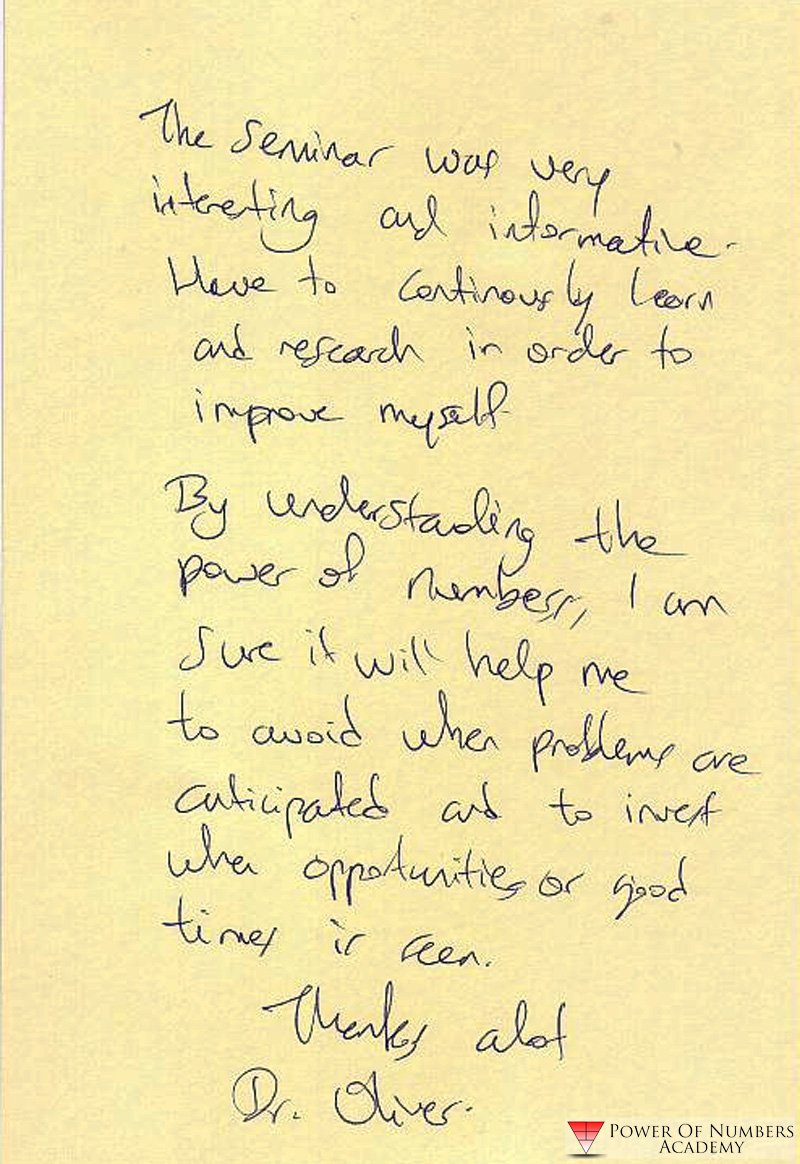 The seminar was very
interesting and informative.
Have to continously learn
and research in order to
improve myself.
By understanding the
power of numbers, I am
sure it will help me
to avoid when problems are
anticipated and to invest
when opportunities or good
times is seen.
Thanks alot
Dr. Oliver.
POWER OF NUMBERS
ACADEMY